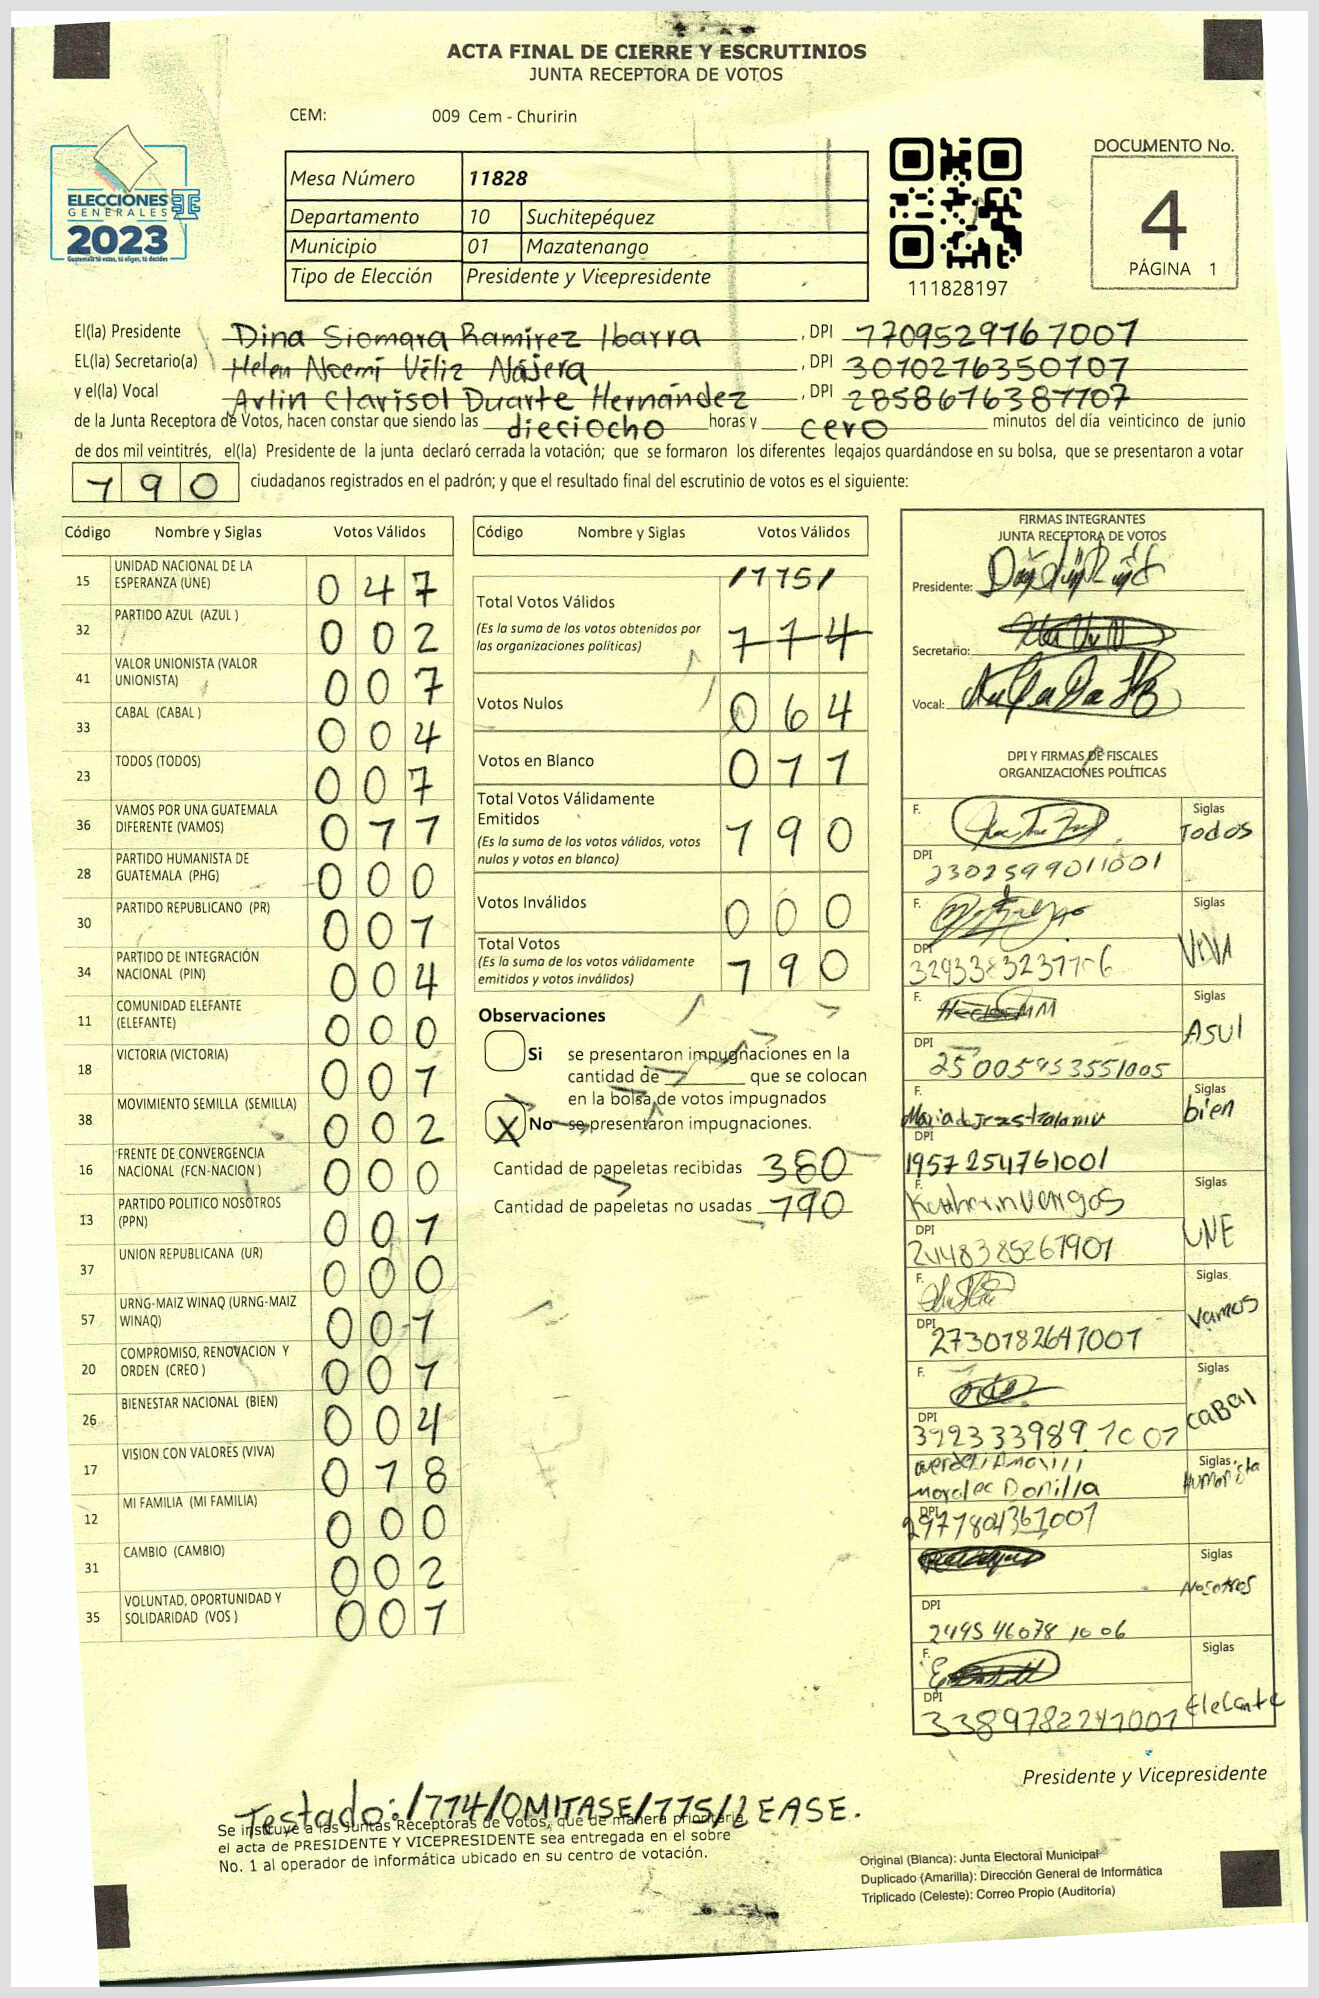 ACTA FINAL DE CIERRE Y ESCRUTINIOS
JUNTA RECEPTORA DE VOTOS
CEM: 009 Cem - Churirin
ELECCIONES
GENERALES
2023
Guatemala tú votas, tú eliges, tú decides
Mesa Número 11828
Departamento 10 Suchitepéquez
Municipio 01 Mazatenango
Tipo de Elección Presidente y Vicepresidente
111828197
DOCUMENTO No.
4
PÁGINA 1
El(la) Presidente Dina Siomara Ramirez Ibarra, DPI 7709529767007
EL(la) Secretario(a) Helen Noemí Véliz Nájera, DPI 3070276350707
y el(la) Vocal Arlin Clarisol Duarte Hernández, DPI 2858676387707
de la Junta Receptora de Votos, hacen constar que siendo las dieciocho horas y cero minutos del día veinticinco de junio
de dos mil veintitrés, el(la) Presidente de la junta declaró cerrada la votación; que se formaron los diferentes legajos guardándose en su bolsa, que se presentaron a votar
190 ciudadanos registrados en el padrón; y que el resultado final del escrutinio de votos es el siguiente:
Código Nombre y Siglas Votos Válidos
15 UNIDAD NACIONAL DE LA ESPERANZA (UNE) 047
32 PARTIDO AZUL (AZUL ) 002
41 VALOR UNIONISTA (VALOR UNIONISTA) 007
33 CABAL (CABAL ) 004
23 TODOS (TODOS) 007
36 VAMOS POR UNA GUATEMALA DIFERENTE (VAMOS) 011
28 PARTIDO HUMANISTA DE GUATEMALA (PHG) 000
30 PARTIDO REPUBLICANO (PR) 001
34 PARTIDO DE INTEGRACIÓN NACIONAL (PIN) 004
11 COMUNIDAD ELEFANTE (ELEFANTE) 000
18 VICTORIA (VICTORIA) 001
38 MOVIMIENTO SEMILLA (SEMILLA) 002
16 FRENTE DE CONVERGENCIA NACIONAL (FCN-NACION ) 000
13 PARTIDO POLITICO NOSOTROS (PPN) 001
37 UNION REPUBLICANA (UR) 000
57 URNG-MAIZ WINAQ (URNG-MAIZ WINAQ) 001
20 COMPROMISO, RENOVACION Y ORDEN (CREO ) 001
26 BIENESTAR NACIONAL (BIEN) 004
17 VISION CON VALORES (VIVA) 018
12 MI FAMILIA (MI FAMILIA) 000
31 CAMBIO (CAMBIO) 002
35 VOLUNTAD, OPORTUNIDAD Y SOLIDARIDAD (VOS ) 001
Código Nombre y Siglas Votos Válidos
/115/
Total Votos Válidos 114
(Es la suma de los votos obtenidos por las organizaciones políticas)
Votos Nulos 064
Votos en Blanco 011
Total Votos Válidamente Emitidos 190
(Es la suma de los votos válidos, votos nulos y votos en blanco)
Votos Inválidos 000
Total Votos 190
(Es la suma de los votos válidamente emitidos y votos inválidos)
Observaciones
Si se presentaron impugnaciones en la
cantidad de que se colocan
en la bolsa de votos impugnados
X No se presentaron impugnaciones.
Cantidad de papeletas recibidas 380
Cantidad de papeletas no usadas 190
FIRMAS INTEGRANTES
JUNTA RECEPTORA DE VOTOS
Presidente:
Secretario:
Vocal:
DPI Y FIRMAS DE FISCALES
ORGANIZACIONES POLÍTICAS
F. Siglas Todos
DPI 2302599011001
F. Siglas VIVA
DPI
F. Siglas Asul
DPI
F. Siglas bien
DPI 1957254761001
F. Siglas UNE
DPI
F. Siglas Vamos
DPI 2730182647001
F. Siglas CaBal
DPI
Siglas Humanista
DPI
Siglas Nosotros
DPI
F. Siglas Elefante
DPI
Presidente y Vicepresidente
Testado:/114/OMITASE/115/LEASE.
Se instruye a las Juntas Receptoras de Votos, que de manera prioritaria,
el acta de PRESIDENTE Y VICEPRESIDENTE sea entregada en el sobre
No. 1 al operador de informática ubicado en su centro de votación.
Original (Blanca): Junta Electoral Municipal
Duplicado (Amarilla): Dirección General de Informática
Triplicado (Celeste): Correo Propio (Auditoría)